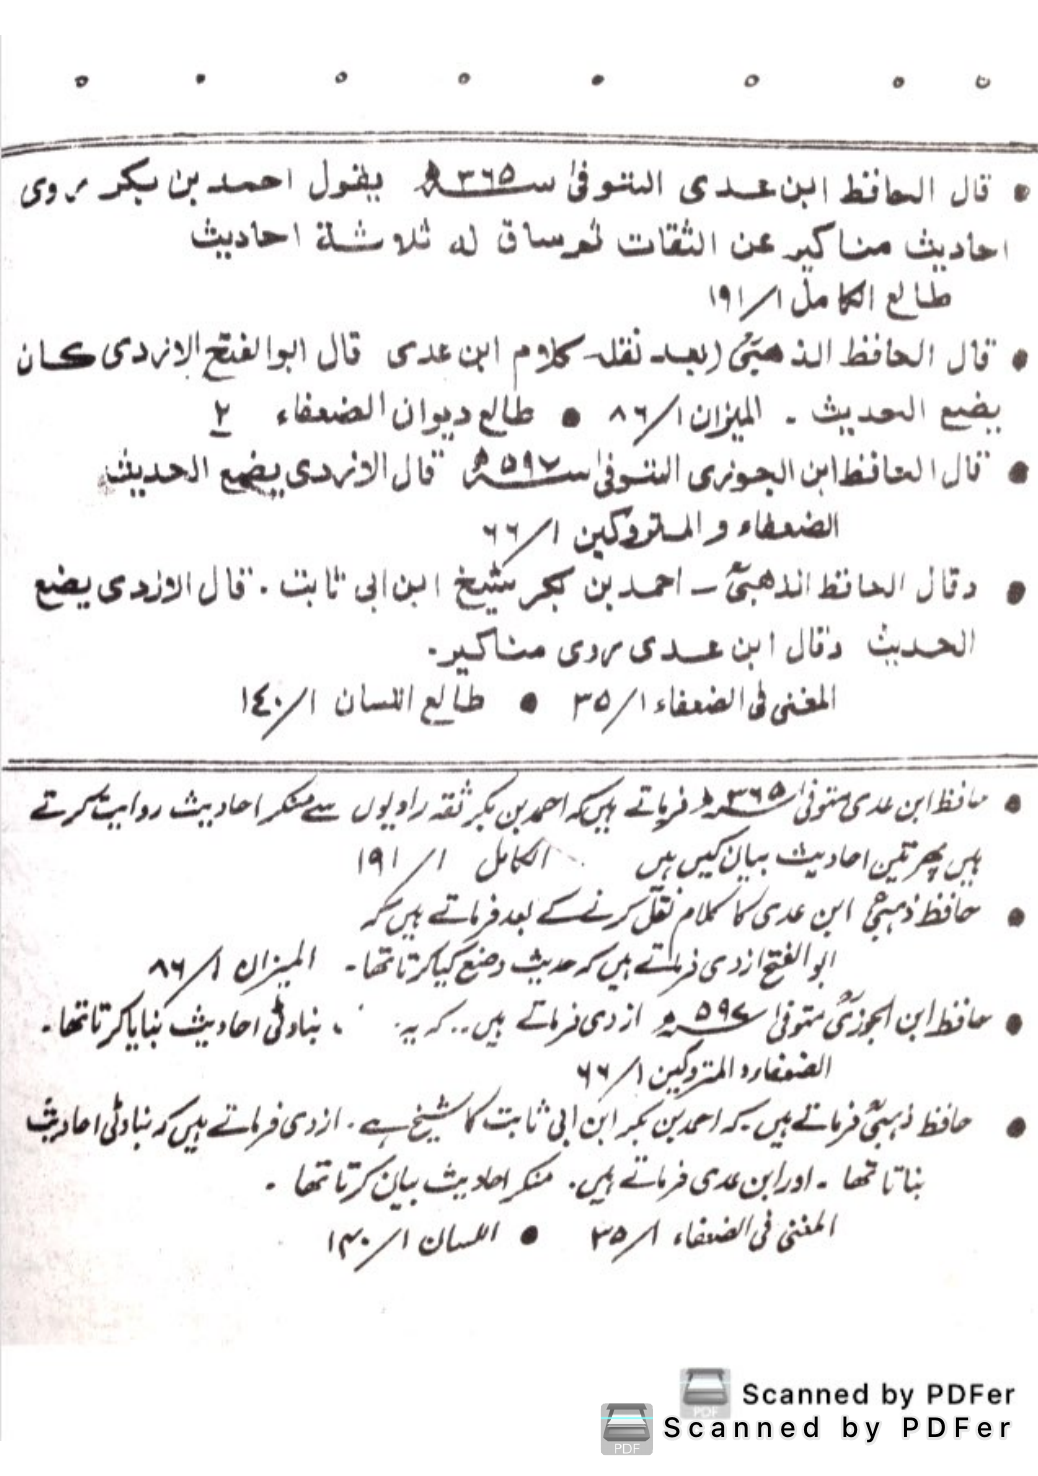 • قال الحافظ ابن عدی المتوفیٰ سـ۳۶۵ـہ یقول احمد بن بکر روی
احادیث مناکیر عن الثقات ثم ساق له ثلاثة احادیث
طالع الکامل ۱/۱۹۱
• قال الحافظ الذهبیؒ (بعد نقله کلام ابن عدی قال ابوالفتح الازدی کان
یضع الحدیث ۔ المیزان ۱/۸۶ • طالع دیوان الضعفاء ۲
• قال الحافظ ابن الجوزی المتوفیٰ سـ۵۹۷ـہ قال الازدی یضع الحدیث
الضعفاء والمتروکین ۱/۶۶
• وقال الحافظ الذهبیؒ – احمد بن بکر شیخ ابن ابی ثابت . قال الازدی یضع
الحدیث وقال ابن عدی روی مناکیر.
المغنی فی الضعفاء ۱/۳۵ • طالع اللسان ۱/۱٤۰
• حافظ ابن عدی متوفیٰ سـ۳۶۵ـہ فرماتے ہیں کہ احمد بن بکر ثقہ راویوں سے منکر احادیث روایت کرتے
ہیں پھر تین احادیث بیان کیں ہیں الکامل ۱/۱۹۱
• حافظ ذہبیؒ ابن عدی کا کلام نقل کرنے کے بعد فرماتے ہیں کہ
ابوالفتح ازدی فرماتے ہیں کہ حدیث وضع کیا کرتا تھا۔ المیزان ۱/۸۶
• حافظ ابن الجوزیؒ متوفیٰ سـ۵۹۷ـہ ازدی فرماتے ہیں .. کہ یہ بناوٹی احادیث بنایا کرتا تھا۔
الضعفاء و المتروکین ۱/۶۶
• حافظ ذہبیؒ فرماتے ہیں کہ احمد بن بکر ابن ابی ثابت کا شیخ ہے ۔ ازدی فرماتے ہیں کہ بناوٹی احادیث
بناتا تھا ۔ اور ابن عدی فرماتے ہیں ۔ منکر احادیث بیان کرتا تھا ۔
المغنی فی الضعفاء ۱/۳۵ • اللسان ۱/۱۴۰
Scanned by PDFer
Scanned by PDFer